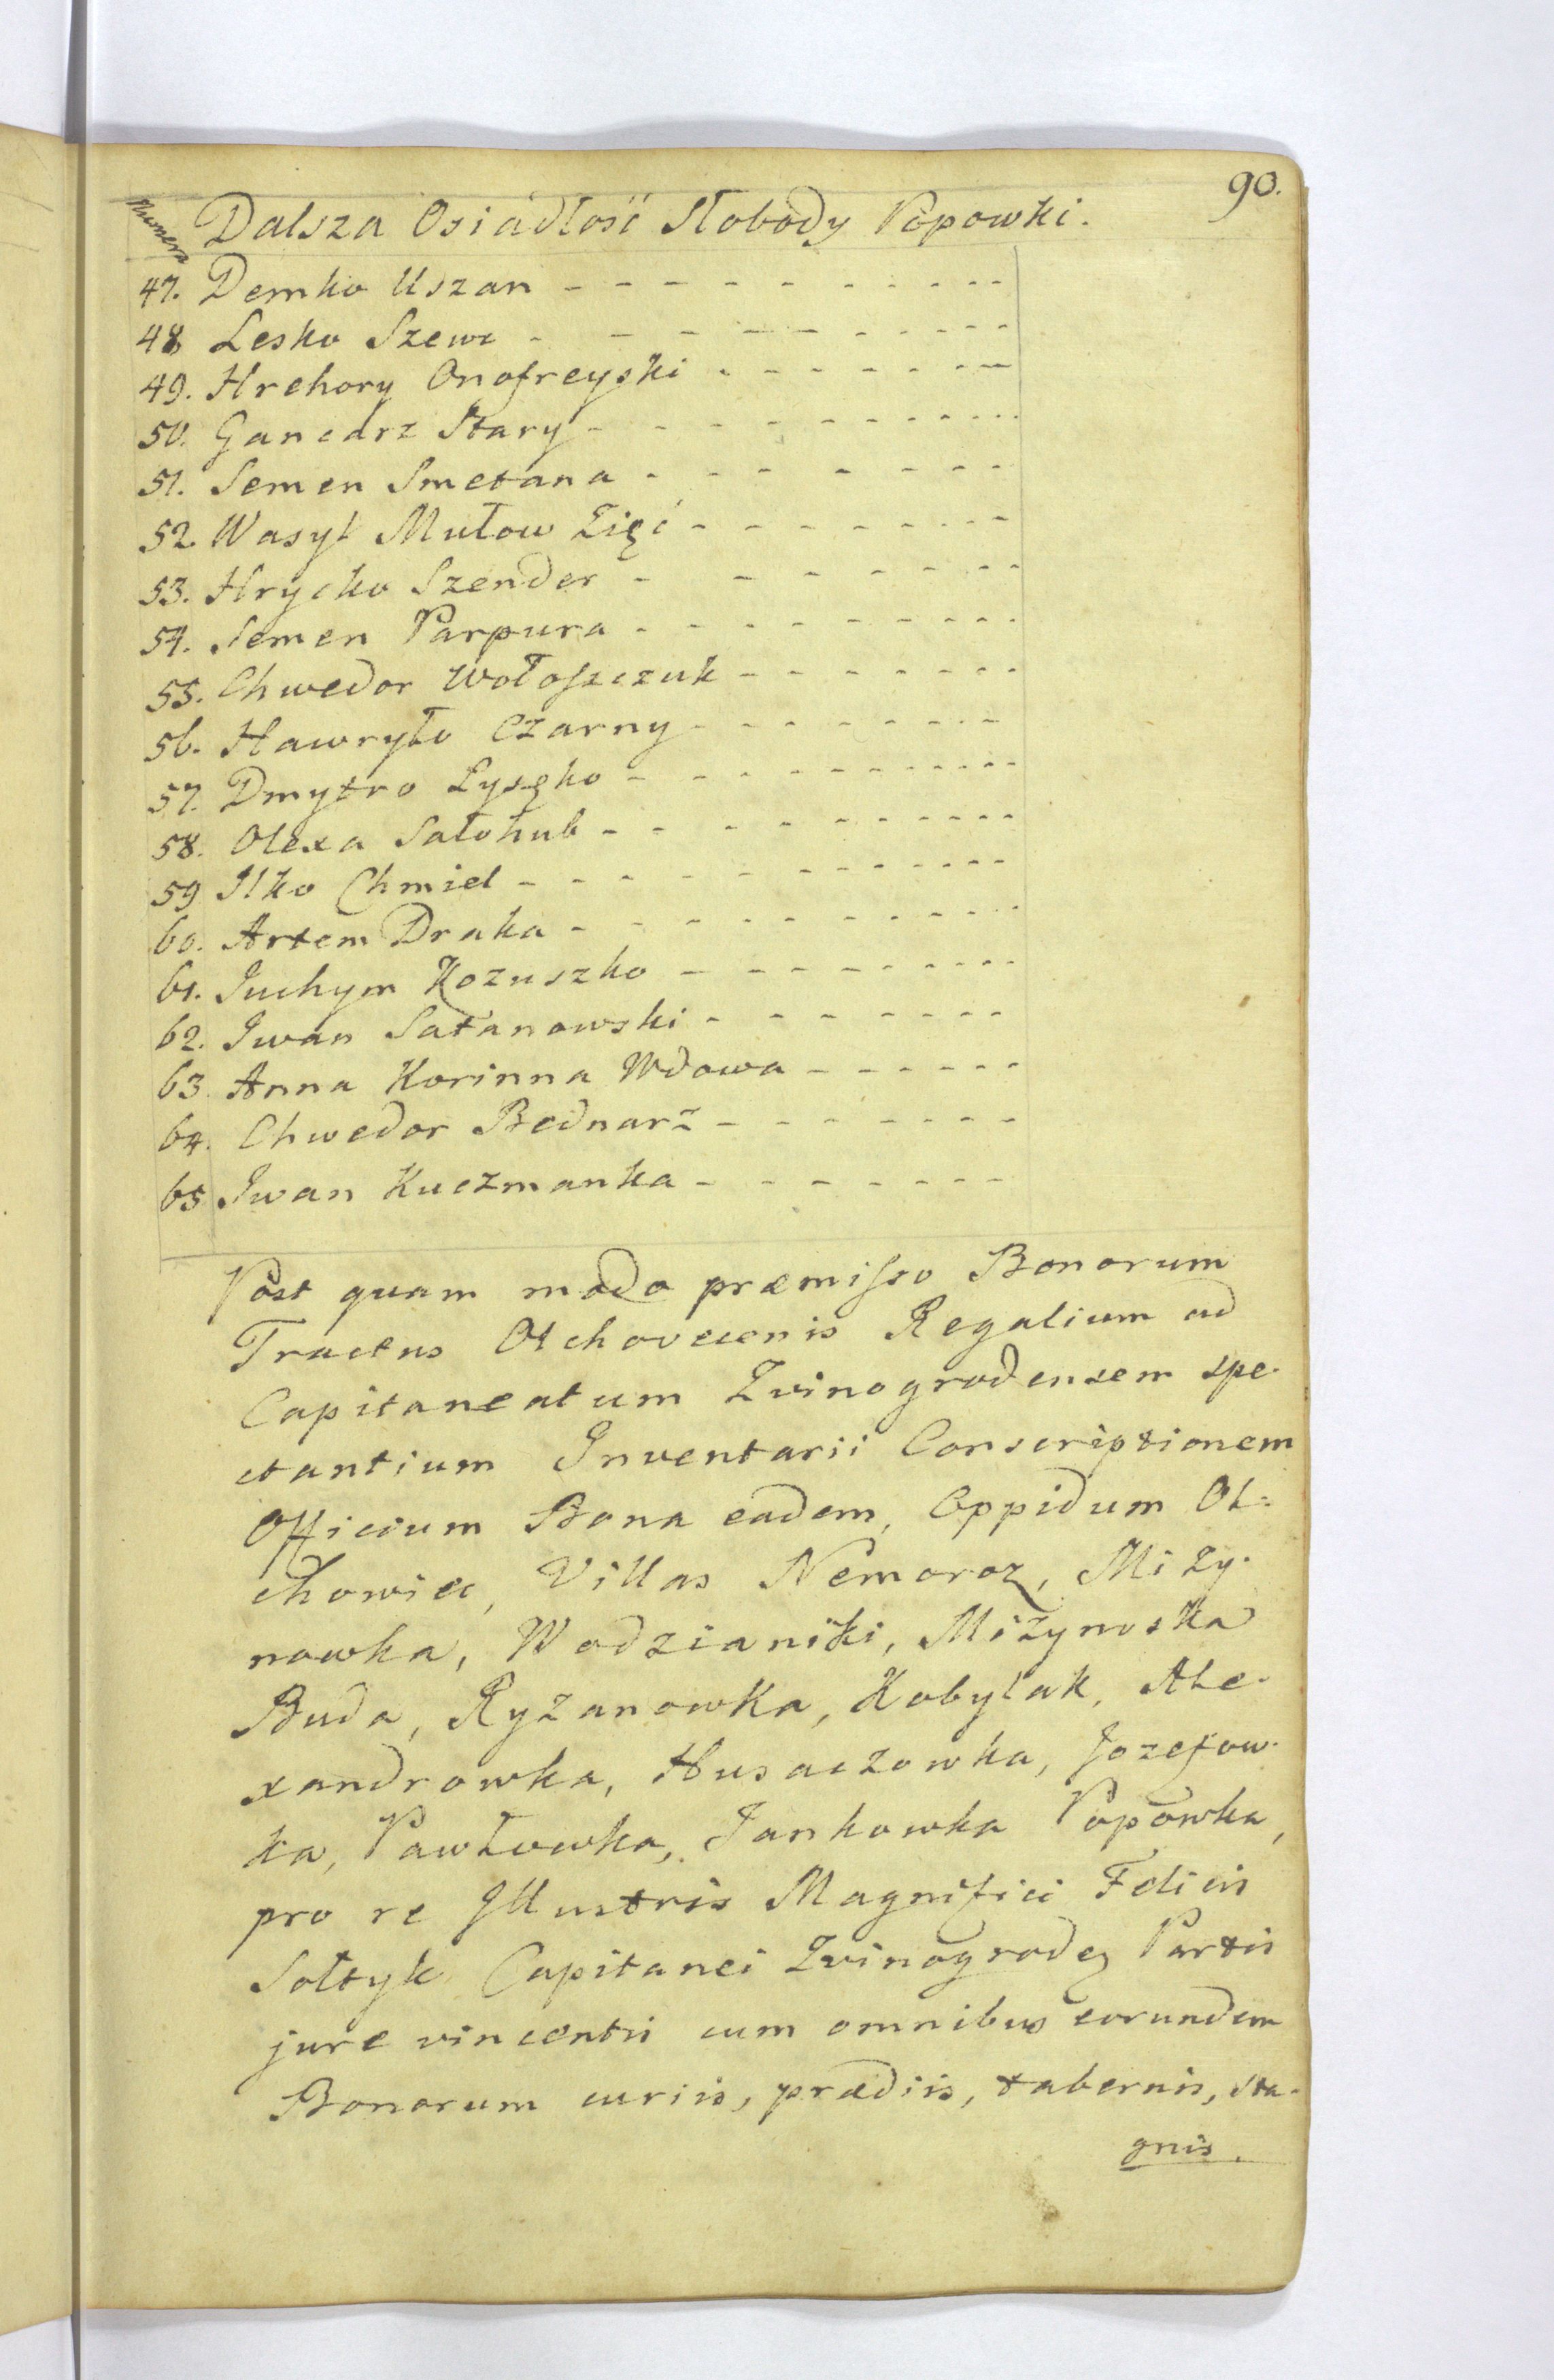 90.
Numera Dalsza Osiadłość Słobody Popowki.
47. Demko Uszan - - - - - - - - - -
48. Lesko Szewc - - - - - - - - - -
49. Hrehory Onofreyski - - - - - - - -
50. Gancarz Stary - - - - - - - - - -
51. Semen Smetana - - - - - - - -
52. Wasyl Mułow Zięć - - - - - - - -
53. Hrycko Szender - - - - - - - -
54. Semen Parpura - - - - - - - - - -
55. Chwedor Wołoszczuk - - - - - - - -
56. Hawryło Czarny - - - - - - - -
57. Dmytro Łyszko - - - - - - - - - -
58. Olexa Sałohub - - - - - - - - - -
59 Ilko Chmiel - - - - - - - - - - -
60. Artem Draka - - - - - - - - - -
61. Juchym Kozuszko - - - - - - - - -
62. Iwan Satanowski - - - - - - - -
63. Anna Korinna Wdowa - - - - - -
64. Chwedor Bednarz - - - - - - -
65 Iwan Kuczmanka - - - - - - -
Post quam modo præmisso Bonorum
Tractus Olchovecensis Regalium ad
Capitaneatum Zvinogrodensem spe-
ctantium Inventarii Conscriptionem
Officium Bona eadem, Oppidum Ol-
chowiec, Villas Nemoroz, Miży-
nowka, Wodzianiki, Miżynoska
Buda, Ryżanowka, Kobylak, Ale-
xandrowka, Husaczowka, Jozefow-
ka, Pawłowka, Jankowka Popowka,
pro re Illustris Magnifici Felicis
Sołtyk Capitanei Zvinogrodeṇ Partis
jure vincentis cum omnibus eorundem
Bonorum curiis, prædiis, tabernis, sta-
gnis.